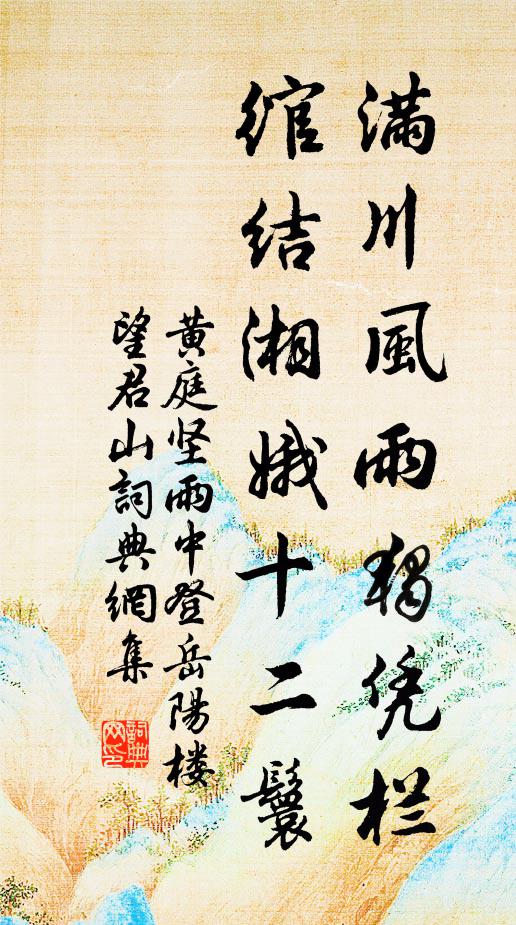 满川風雨獨凭栏
綰结湘娥十二鬟
黄庭坚雨中登岳陽楼
望君山詞典網集
詞典網印